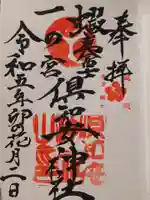 奉拝
蝦夷
一の宮 倶知安神社
令和五年卯の花月一日